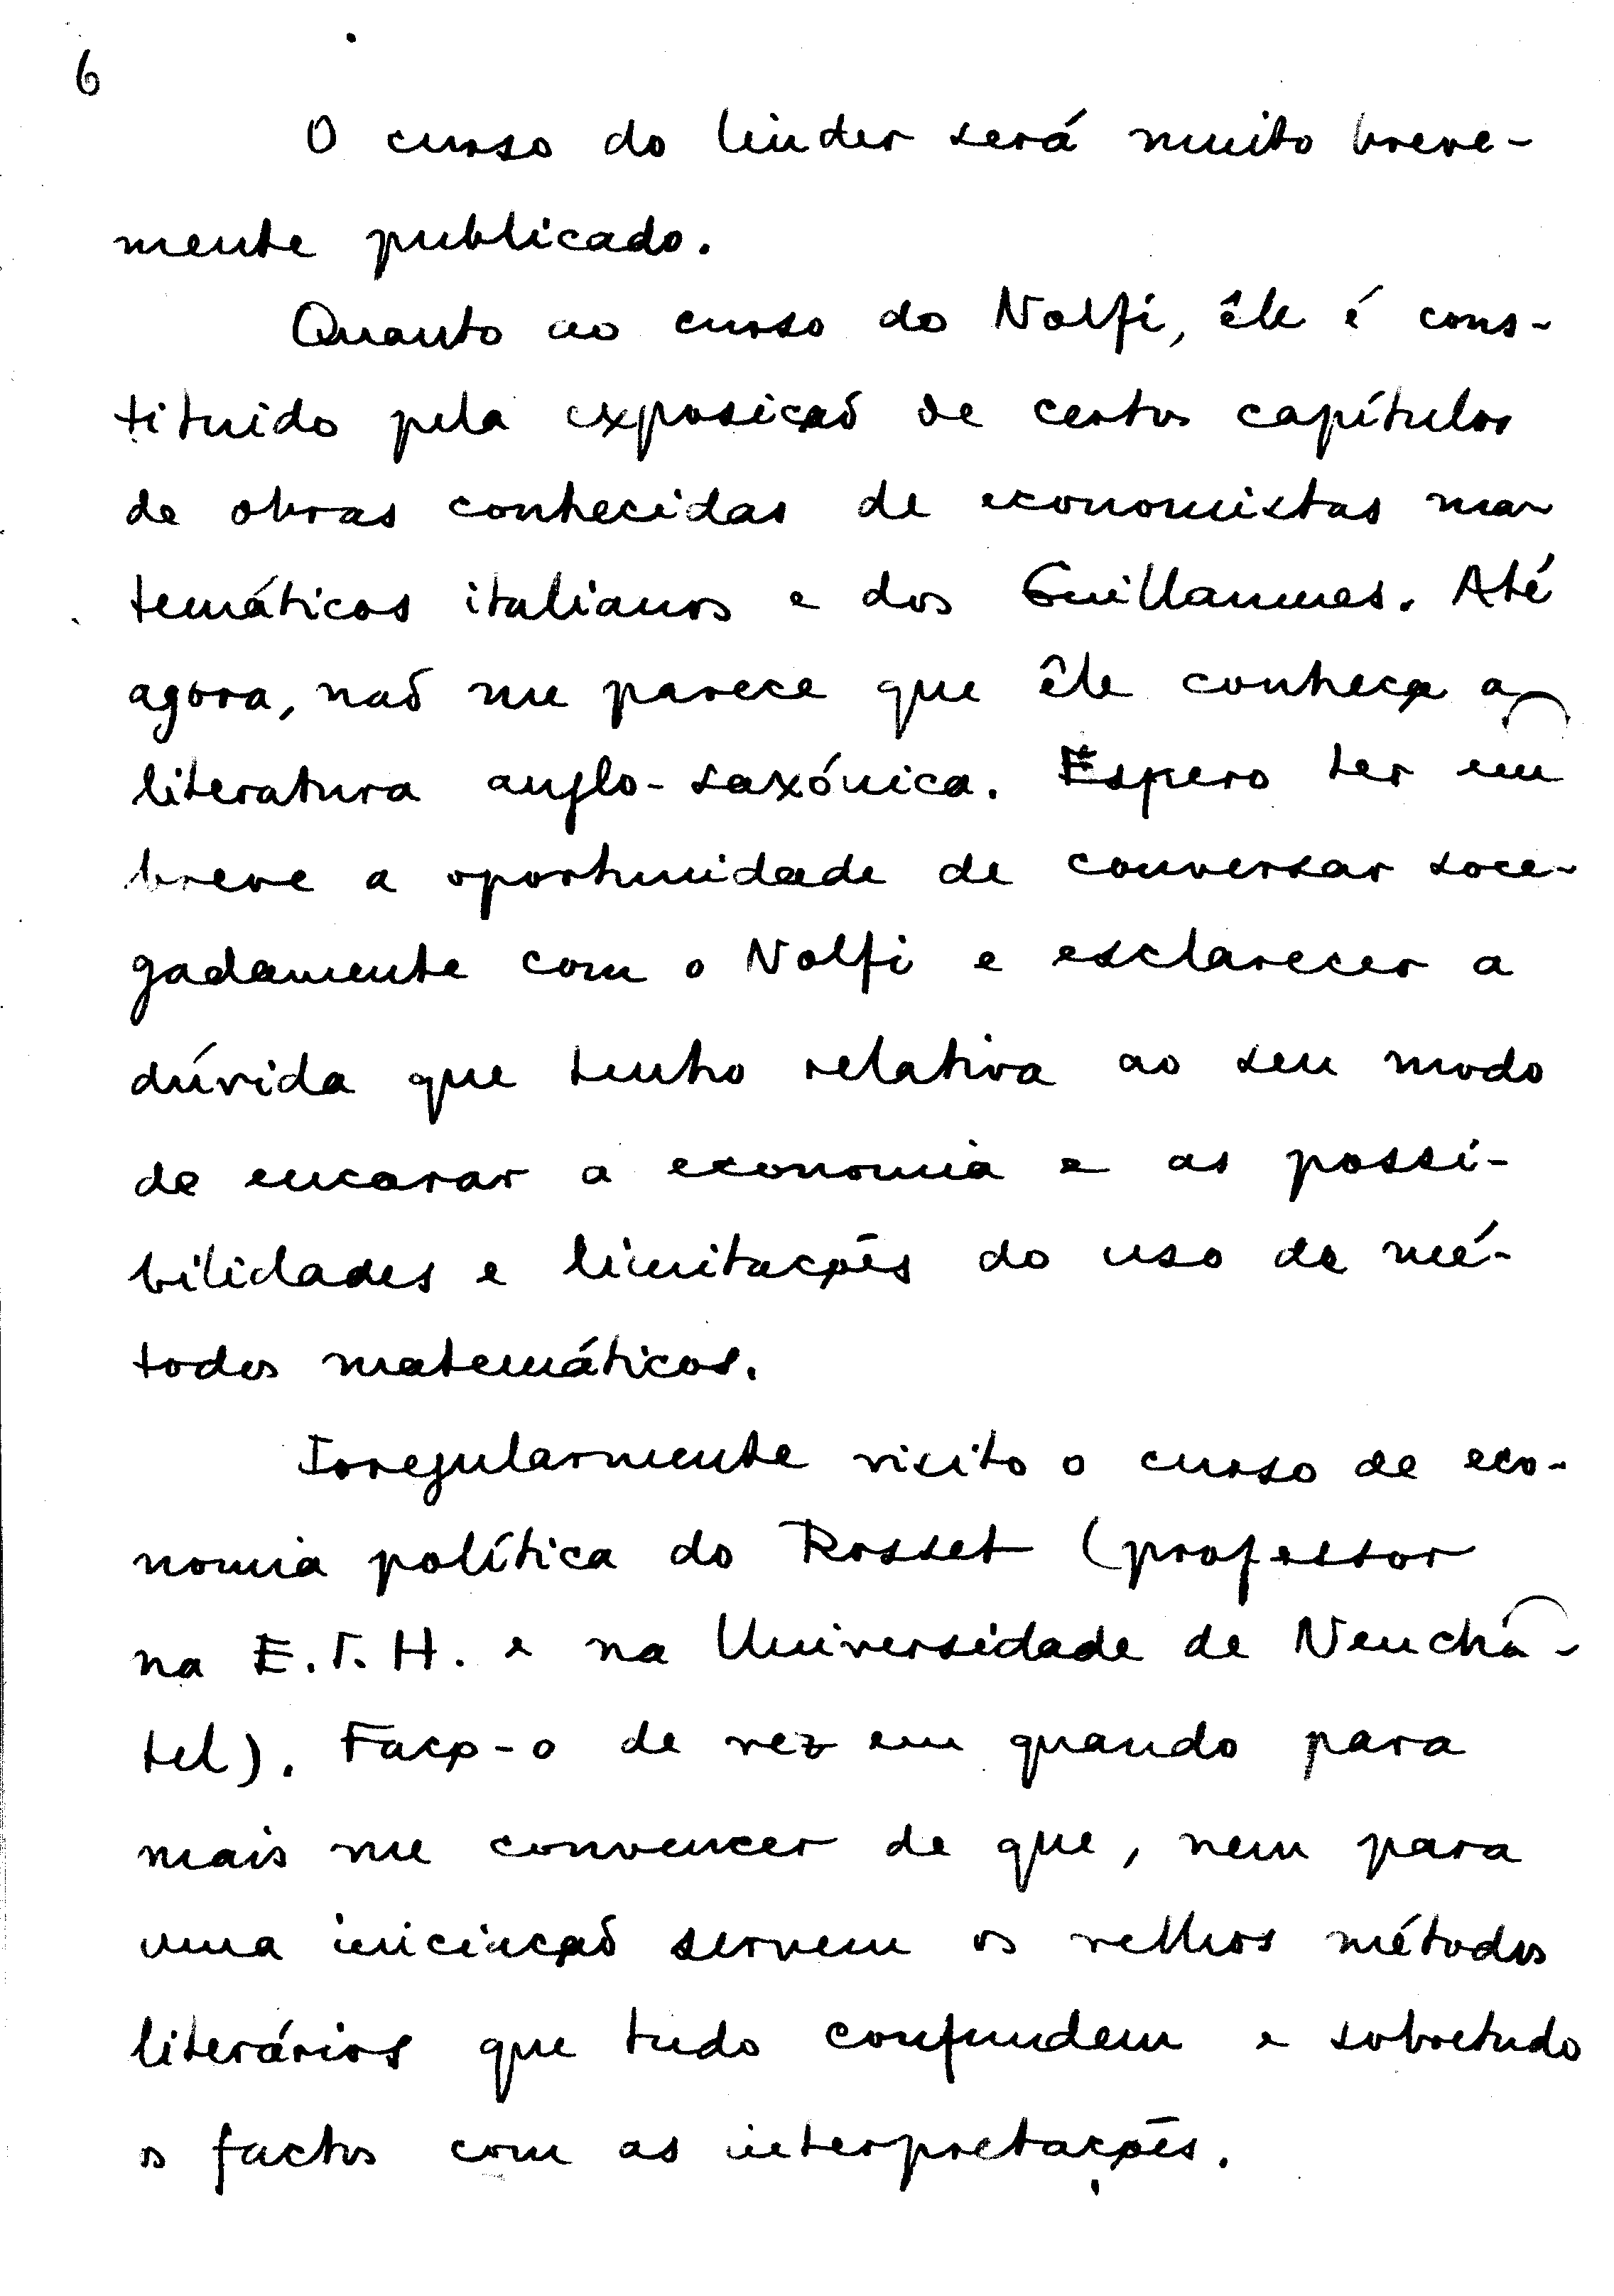 6
O curso do Linder será muito breve-
mente publicado.
Quanto ao curso do Nolfi, êle é cons-
tituido pela exposição de certos capítulos
de obras conhecidas de economistas ma-
temáticos italianos e dos Guillaumes. Até
agora, não me parece que êle conheça a
literatura anglo-saxónica. Espero ter em
breve a oportunidade de conversar soce-
gadamente com o Nolfi e esclarecer a
dúvida que tenho relativa ao seu modo
de encarar a economia e as possi-
bilidades e limitações do uso de mé-
todos matemáticos.
Irregularmente visito o curso de eco-
nomia política do Rosset (professor
na E.T.H. e na Universidade de Neuchâ-
tel). Faço-o de vez em quando para
mais me convencer de que, nem para
uma iniciação servem os velhos métodos
literários que tudo confundem e sobretudo
os factos com as interpretações.